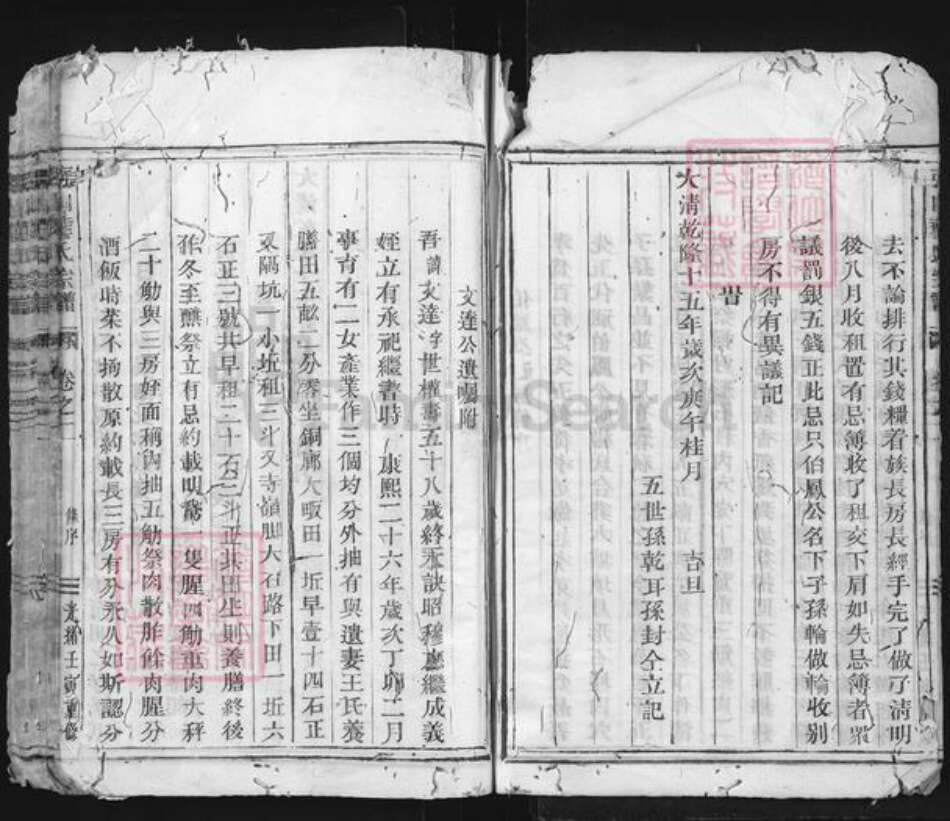 去不論排行其錢糧着族長房長經手完了做了清明
後八月收租置有忌簿收了租交下肩如失忌簿者眾
議罰銀五錢正此忌只伯鳳公名下子孫輪做輪收别
房不得有異議記
旹
大清乾隆十五年歲次庚午桂月 吉旦
五世孫乾耳孫封仝立記
文達公遺囑附
吾 文達字世權壽五十八歲終永訣昭穆應繼成義
姪立有承祀繼書時 康熙二十六年歲次丁卯二月
事育有一女產業作三個均分外抽有與遺妻王氏養
膳田五畝二分零坐銅廊大畈田一坵早壹十四石正
東隔坑一小坵租三斗又寺嶺脚大石路下田一坵六
石正三號共早租二十石三斗正其田生則養膳終後
孫冬至醮祭立有忌約載明 隻腥四觔重肉大秤
二十觔與三房好面稱內抽五觔祭肉散胙餘肉腥分
酒飯時菜不拘散原約載長三房有分永久如斯認分
宗譜 卷之二 條序 光緒壬寅重修
FamilySearch